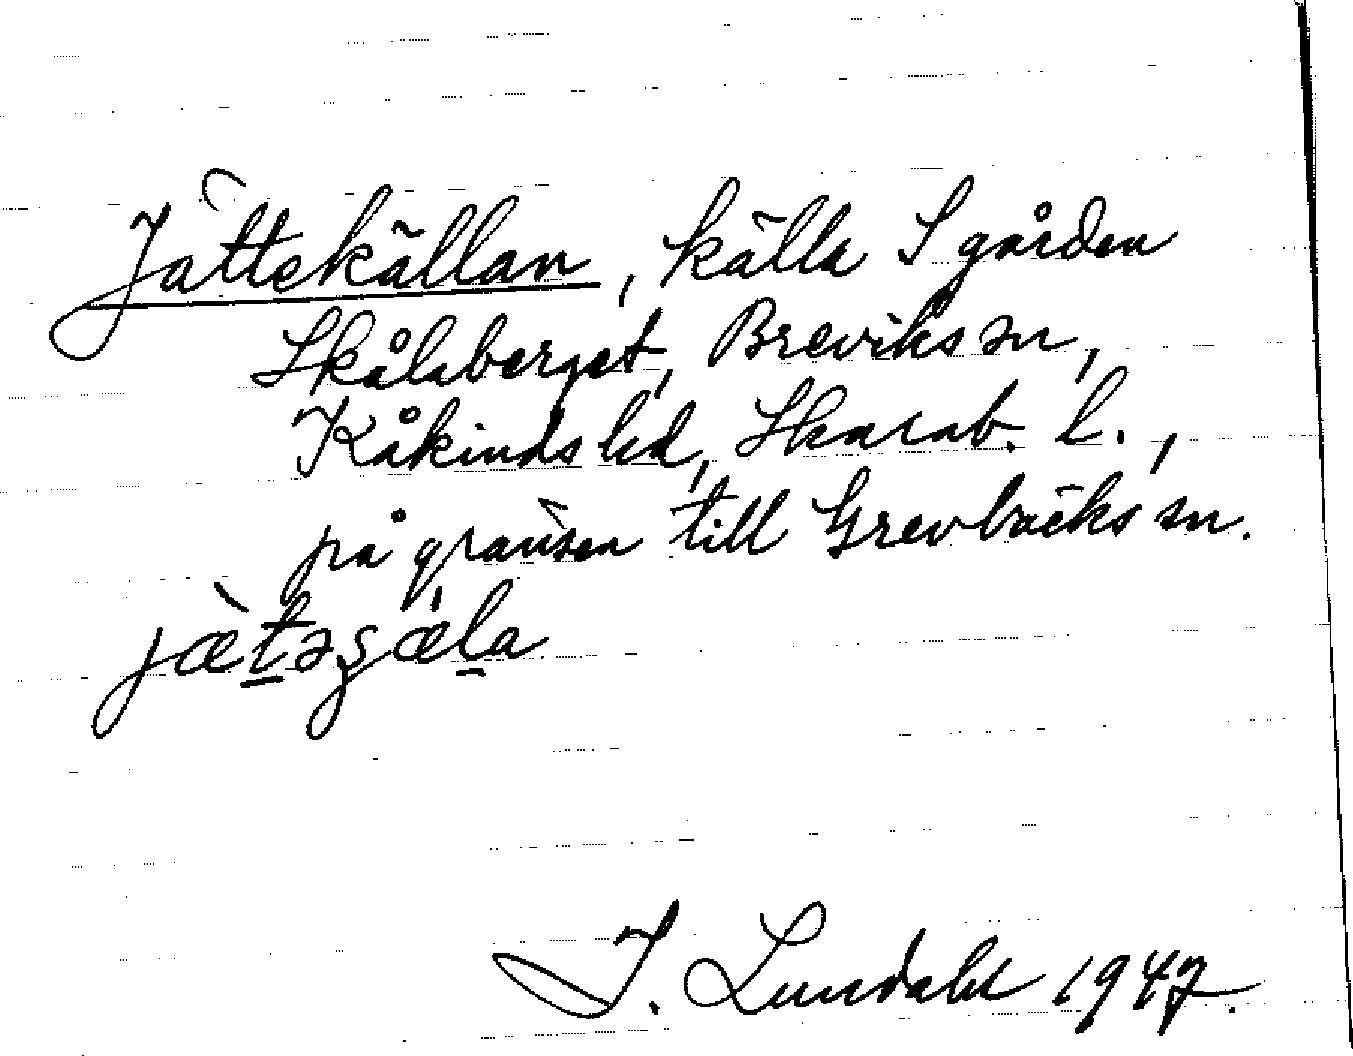 Jättekällan, källa S gården
Skålaberget, Breviks sn,
Kåkinds hd, Skarab. l.,
på gränsen till Grevbäcks sn.
jæ̀t̠əʂæ̍l̠a
I. Lundahl 1947.